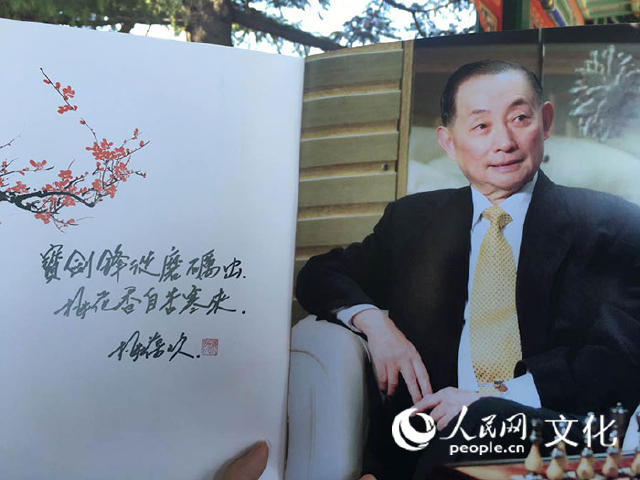 寶劍鋒從磨礪出.
梅花香自苦寒来.
梅葆玖.
人民网 文化
people.cn